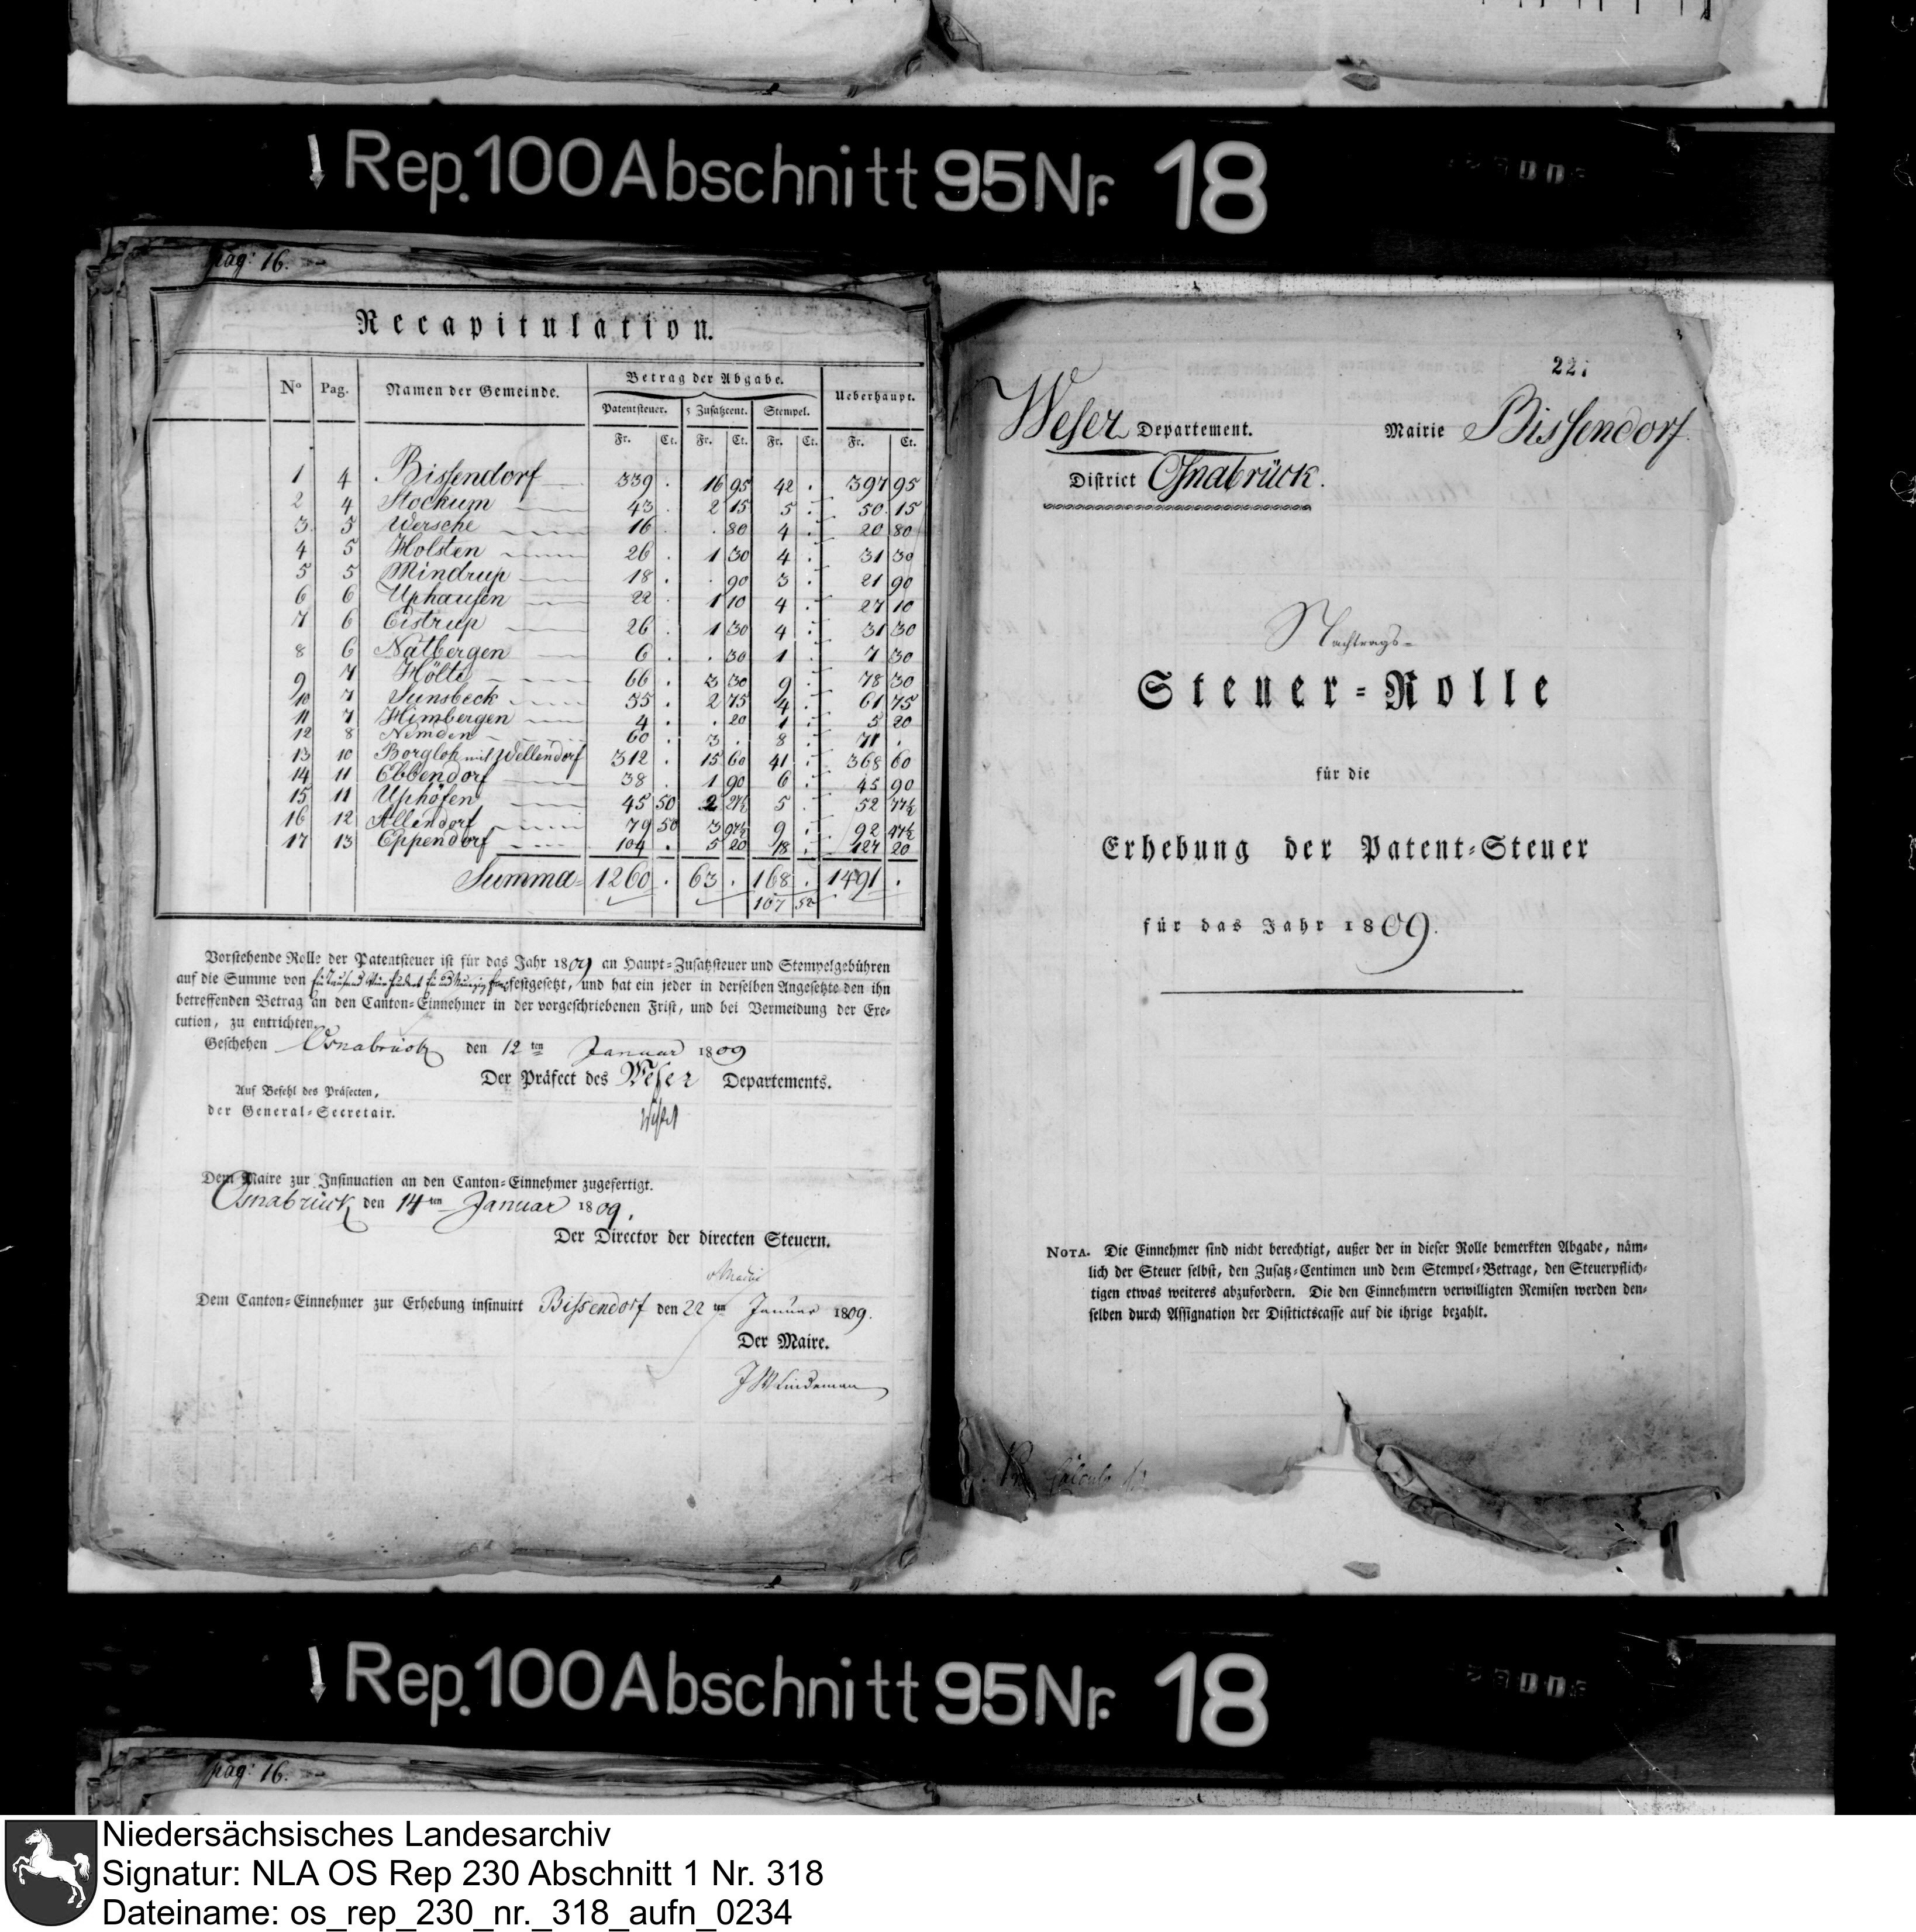 Rep. 100 Abschnitt 95 Nr. 18
pag: 16.
Recapitulation.
No Pag. Namen der Gemeinde. Betrag der Abgabe. Ueberhaupt.
Patentsteuer. 5 Zusatzcent. Stempel.
Fr. Ct. Fr. Ct. Fr. Ct. Fr. Ct.
1 4 Bissendorf 339 . 16 95 42 . 397 95
2 4 Stockum 43 . 2 15 5 . 50 15
3. 5 Wersche 16 . . 80 4 . 20 80
4 5 Holsten 26 . 1 30 4 . 31 30
5 5 Mindrup 18 . . 90 3 . 21 90
6 6 Uphausen 22 . 1 10 4 . 27 10
7 6 Eistrup 26 . 1 30 4 . 31 30
8 6 Natbergen 6 . . 30 1 . 7 30
9 7 Hölte 66 . 3 30 9 . 78 30
10 7 Sunsbeck 55 . 2 75 4 . 61 75
11 7 Himbergen 4 . . 20 1 . 5 20
12 8 Nemden 60 . 3 . 8 . 71 .
13 10 Borgloh mit Wellendorf 312 . 15 60 41 . 368 60
14 11 Ebbendorf 38 . 1 90 6 . 45 90
15 11 Uphöfen 45 50 2 27½ 5 . 52 77½
16 12 Allendorf 79 50 3 97½ 9 . 92 47½
17 13 Eppendorf 104 . 5 20 18 . 127 20
Summa 1260 . 63 . 168 . 1491 .
167 52
Vorstehende Rolle der Patentsteuer ist für das Jahr 1809 an Haupt-Zusatzsteuer und Stempelgebühren
auf die Summe von Ein Tausend Vier Hundert Ein und Neunzig Frcs festgesetzt, und hat ein jeder in derselben Angesetzte den ihn
betreffenden Betrag an den Canton-Einnehmer in der vorgeschriebenen Frist, und bei Vermeidung der Exe-
cution, zu entrichten.
Geschehen Osnabrück den 12ten Januar 1809
Der Präfect des Weser Departements.
Auf Befehl des Präfecten,
der General-Secretair.
Dem Maire zur Insinuation an den Canton-Einnehmer zugefertigt.
Osnabrück den 14ten Januar 1809.
Der Director der directen Steuern.
Dem Canton-Einnehmer zur Erhebung insinuirt Bissendorf den 22ten Januar 1809.
Der Maire.
J W Lindeman
227
Weser Departement. Mairie Bissendorf
District Osnabrück.
Nachtrags-
Steuer-Rolle
für die
Erhebung der Patent-Steuer
für das Jahr 1809.
NOTA. Die Einnehmer sind nicht berechtigt, außer der in dieser Rolle bemerkten Abgabe, näm-
lich der Steuer selbst, den Zusatz-Centimen und dem Stempel-Betrage, den Steuerpflich-
tigen etwas weiteres abzufordern. Die den Einnehmern verwilligten Remisen werden den-
selben durch Assignation der Disttictscasse auf die ihrige bezahlt.
Rep. 100 Abschnitt 95 Nr. 18
pag: 16.
Niedersächsisches Landesarchiv
Signatur: NLA OS Rep 230 Abschnitt 1 Nr. 318
Dateiname: os_rep_230_nr._318_aufn_0234